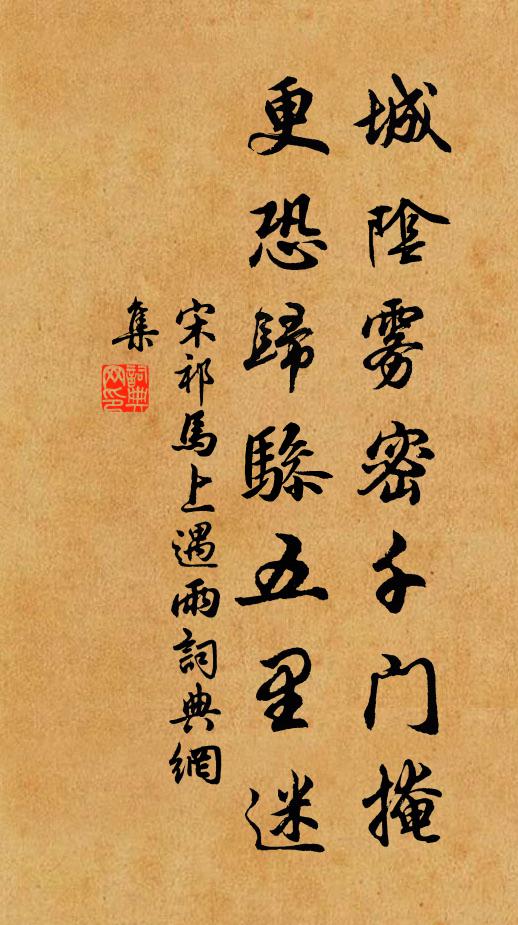 城陰雾密千门掩
更恐歸驂五里迷
宋祁馬上遇雨詞典網
集
詞典
网印